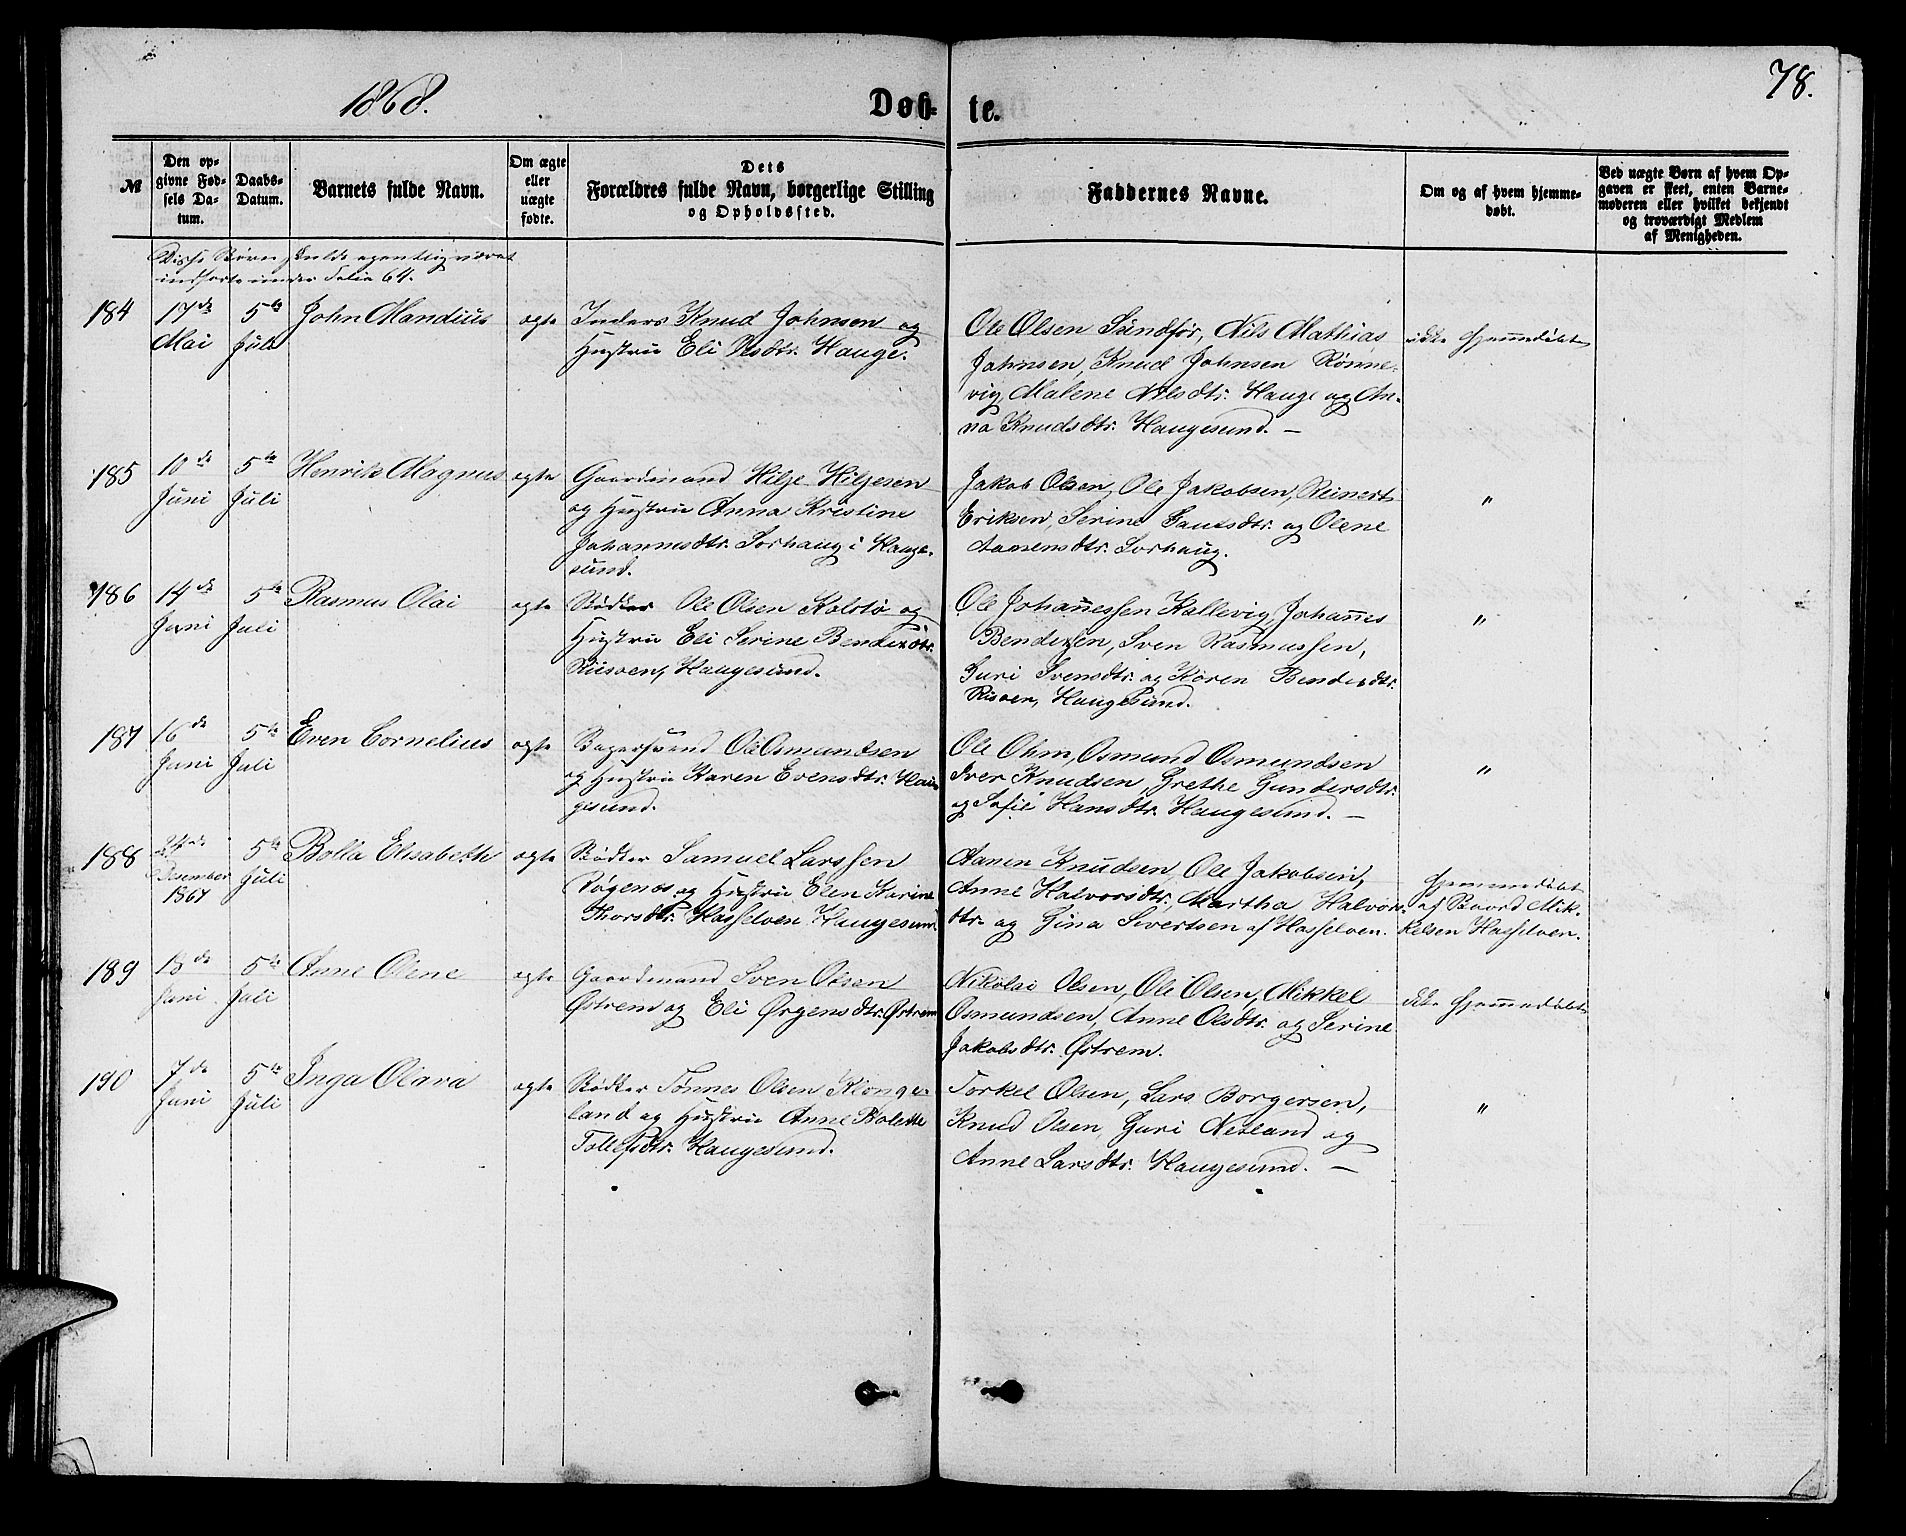 1868.
Døbte.
78.
№
Den opgivne Fødsels Datum.
Daabs-Datum.
Barnets fulde Navn.
Om ægte eller uægte fødte.
Dets Forældres fulde Navn, borgerlige Stilling og Opholdssted.
Faddernes Navne.
Om og af hvem hjemmedøbt.
Ved uægte Børn af hvem Opgaven er skeet, enten Barnemoderen eller hvilket bekjendt og troværdigt Medlem af Menigheden.
Disse Børn skulde egentlig været
indførte under Folio 64.
184
17de Mai
5te Juli
John Mandius
ægte
Inders Knud Johnsen og
Hustru Eli Olsdtr. Hauge.
Ole Olsen Sundfør, Nils Mathias
Johnsen, Knud Johnsen Rønne-
vig, Malene Nilsdtr. Hauge og An-
na Knudsdtr. Haugesund. —
ikke hjemmedøbt
185
10de Juni
5te Juli
Henrik Magnus
ægte
Gaardmand Hilje Hiljesen
og Hustru Anna Kristine
Johannesdtr. Sørhaug i Hauge-
sund.
Jakob Olsen, Ole Jakobsen, Reinert
Eriksen, Serine Gautsdtr. og Olene
Aanensdtr. Sørhaug.
"
186
14de Juni
5te Juli
Rasmus Olai
ægte
Bødker Ole Olsen Kolstø og
Hustru Eli Serine Bendixdtr.
Risøen, Haugesund.
Ole Johannessen Kallevig, Johannes
Bendixen, Sven Rasmussen,
Guri Svensdtr. og Karen Bendixdtr.
Risøen, Haugesund.
"
187
16de Juni
5te Juli
Even Cornelius
ægte
Bagersvend Ole Osmundsen
og Hustru Karen Evensdtr. Hau-
gesund.
Ole Ohm, Osmund Osmundsen
Iver Knudsen, Grethe Gundersdtr.
og Sofie Hansdtr. Haugesund. —
"
188
24de Desember 1867
5te Juli
Bolla Elisabeth
ægte
Bødker Samuel Larssen
Røgenes og Hustru Elen Karine
Thorsdtr. Hasseløen Haugesund
Aanen Knudsen, Ole Jakobsen,
Anne Halvorsdtr., Martha Halvors-
dtr. og Gina Sivertsen af Hasseløen.
hjemmedøbt
af Baard Mik-
kelsen Hasseløen.
189
18de Juni
5te Juli
Anne Olene
ægte
Gaardmand Sven Olsen
Østrem og Eli Ørgensdtr. Østrem
Nikolai Olsen, Ole Olsen, Mikkel
Osmundsen, Anne Olsdtr. og Serine
Jakobsdtr. Østrem.
ikke hjemmedøbt
190
7de Juni
5te Juli
Inga Olava
ægte
Bødker Tønnes Olsen Klonge-
land og Hustru Anne Bolette
Tollefsdtr. Haugesund.
Torkel Olsen, Lars Borgersen,
Knud Olsen, Guri Netland og
Anne Larsdtr. Haugesund. —
"